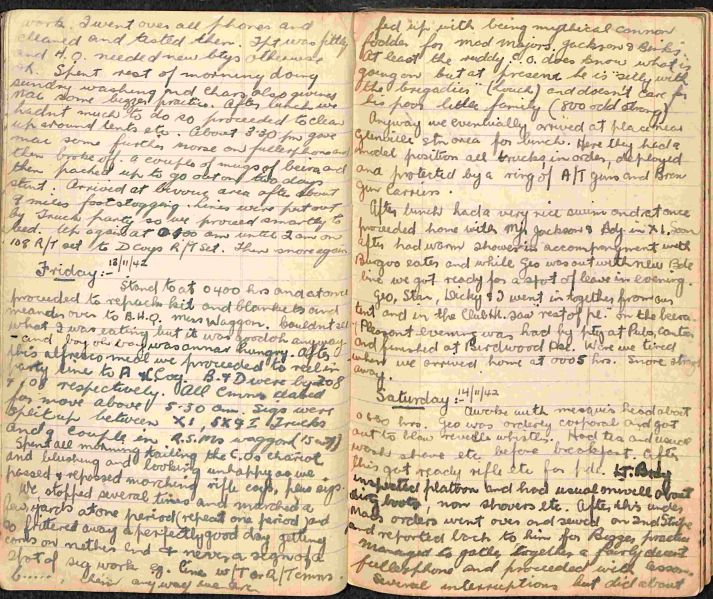 work. I went over all phones and
cleaned and tested them.
and H.Q. needed new btys otherwise
ok. Spent rest of morning doing
sundry washing and chars also giving
mac some buzzer practice. After lunch we
hadn't much to do so proceeded to clean
up around tents etc. About 3.30 pm gave
mac some further morse on fullerphone and
then broke off. a couple of mugs of beers and
then packed up to go out on two days
stunt. Arrived at bivouac area after about
9 miles footslogging. Lines were put out
by Truck party so we proceed smartly to
bed. Up again at until 2 am on
108 R/T set to D Coys R/T Set. Then snore again
Friday:- 13/11/42
Stand to at 0400 hrs and at once
proceeded to repack kit and blankets and
meander over to B.H.Q. mess waggon. Couldn't see
what I was eating but it was goodoh anyway
- and boy oh boy was annas hungry. After
this alfresco meal we proceeded to reel in
party line to A & C Coy. B. & D were by 208
& 108 respectively. All Comms closed
for move above 5.30 am. Sigs were
split up between X1, 5X9 I Trucks
and a couple in R.S.Ms waggon (15 cwt)
Spent all morning tailing the C.O's chariot
and blushing and looking unhappy as we
passed & repassed marching rifle coys, plus sigs.
We stopped several times and marched a
few yards at one period (repeat one period) and
so frittered away a perfectly good day getting
corns on nether end & never a sign of a
spot of sig work eg. line W/T or R/T comms
B..... Ah anyway we are
fed up with being mythical cannon
fodder for mad majors, Jackson & Binks.
At least the ruddy C.O. does know what is
going on but at present he is "silly with
the brigadier" and doesn't care for
his poor little family (800 odd strong)
Anyway we eventually arrived at place near
Glenville stn area for lunch. Here they had a
model position all trucks in order, deployed
and protected by a ring of A/T guns and Bren
Gun Carriers.
After lunch had a very nice swim and at once
proceeded home with Mjr Jackson & Bdy in X1. Soon
after had warm shower in accompaniment with
Bugoo eates and while Geo was out with new Bde
line we got ready for a spot of leave in evening.
Geo, Stan, Dicky & I went in together from our
tent and in the Club H. saw rest of pl. on the beers.
Pleasant evening was had by pty at Pub, Canteen
and finished at Birdwood Dce. Were we tired
when we arrived home at 0005 hrs. Snore straight
away.
Saturday:- 14/11/42
Awoke with head about
0430 hrs. Geo was orderly corporal and got
out to blow reveille whistle. Had tea and usual
wash shave etc before breakfast. After
this got ready rifle etc for pde. Lt. Bndy
inspected platoon and had usual moan about
dirty boots, now shovers etc. After this under
Macs orders went over and sewed on 2nd Stripe
and reported back to him for Buzzer practice
managed to gather together a fairly decent
fullerphone and proceeded with lesson.
Several interruptions but did about